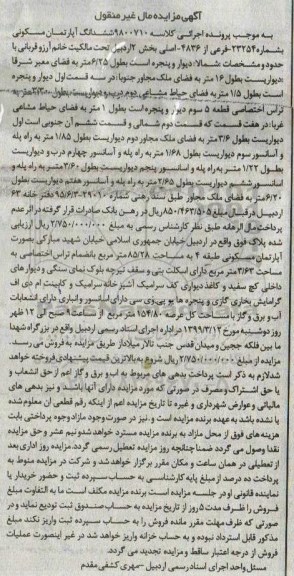 آگهی مزایده مال غیر منقول
به موجب پرونده اجرایی کلاسه ۹۸۰۰۷۱۰ ششدانگ آپارتمان مسکونی
بشماره ۲۳۲۵۴ فرعی از ۴۸۳۶- اصلی بخش ۲ اردبیل تحت مالکیت خانم آرزو قربانی با
حدود و مشخصات شمالا: دیوار و پنجره است بطول ۶/۲۵ متر به فضای معبر شرقا
:دیواریست بطول ۱۶ متر به فضای ملک مجاور جنوبا: در سه قسمت اول دیوار و پنجره
است بطول ۱/۵ متر به فضای حیاط مشاعی دوم درب و دیواریست بطول متر به
تراس اختصاصی قطعه ۵ سوم دیوار و پنجره است بطول ۱ متر به فضای حیاط مشاعی
غربا: در هفت قسمت که قسمت دوم شمالی و قسمت ششم آن جنوبی است اول
دیواریست بطول ۳/۶ متر به فضای ملک مجاور دوم دیواریست بطول ۱/۸۵ متر به راه پله
و آسانسور سوم دیواریست بطول ۱/۶۸ متر به راه پله و آسانسور چهارم درب و دیواریست
بطول ۱/۲۲ متر به راه پله و آسانسور پنجم دیواریست بطول ۳/۶۰ متر به راه پله و
آسانسور ششم دیواریست بطول ۲/۶۵ متر به راه پله و آسانسور هفتم دیواریست بطول
۶/۳۰ متر به فضای ملک مجاور طبق سند رهنی شماره ۲۹۰۱۰-۹۵/۶/۳ دفتر خانه ۶۲
اردبیل در قبال مبلغ ۸۵۰/۴۶۳/۵۰۵ ریال در رهن بانک صادرات قرار گرفته در اثر عدم
پرداخت مال الرهانه طبق نظر کارشناس رسمی به مبلغ ۲/۷۵۰/۰۰۰/۰۰۰ ریال ارزیابی
شده پلاک فوق واقع در اردبیل خیابان جمهوری اسلامی خیابان شهید مبارکی بصورت
آپارتمان مسکونی طبقه ۴ به مساحت ۸۵/۲۸ متر مربع بانضمام تراس اختصاصی به
مساحت ۳/۶۳ متر مربع دارای اسکلت بتنی و سقف تیرچه بلوک نمای سنگی و دیوارهای
داخلی گچ سفید و کاغذ دیواری کف سرامیک آشپزخانه سرامیک و کابینت ام دی اف
گرمایش بخاری گازی و پنجره ها یو پی وی سی دارای آسانسور و انباری دارای انشعابات
آب و برق و گاز با مساحت کل عرصه ۱۵۴/۸۰ متر مربع از ساعت ۹ صبح الی ۱۲ ظهر
روز دوشنبه مورخ ۱۳۹۹/۳/۱۲ در اداره اجرای اسناد رسمی اردبیل واقع در بزرگراه شهدا
ما بین فلکه ججین و میدان قدس جنب تالار میلاد از طریق مزایده به فروش می رسد.
مزایده از مبلغ ۲/۷۵۰/۰۰۰/۰۰۰ ریال شروع به بالاترین قیمت پیشنهادی فروخته خواهد
شد لازم به ذکر است پرداخت بدهی های مربوط به آب و برق و گاز اعم از حق انشعاب و
یا حق اشتراک و مصرف در صورتی که مورد مزایده دارای آنها باشد و نیز بدهی های
مالیاتی و عوارض شهرداری و غیره تا تاریخ مزایده اعم از اینکه رقم قطعی آن معلوم شده
یا نشده باشد به عهده برنده مزایده است و نیز در صورت وجود مازاد وجوه پرداختی بابت
هزینه های فوق از محل مازاد به برنده مزایده مسترد خواهد شد نیم عشر و حق مزایده
نقدا وصول می گردد ضمنا چنانچه روز مزایده تعطیل رسمی گردد، مزایده روز اداری بعد
از تعطیلی در همان ساعت و مکان مقرر برگزار خواهد شد و شرکت در مزایده منوط به
پرداخت ده درصد از مبلغ پایه کارشناسی به حساب سپرده ثبت و حضور خریدار یا
نماینده قانونی او در جلسه مزایده است برنده مزایده مکلف است ما به التفاوت مبلغ
فروش را ظرف مدت ۵ روز از تاریخ مزایده به حساب صندوق ثبت تودیع نماید و در
صورتی که ظرف مهلت مقرر مانده فروش را به حساب سپرده ثبت واریز نکند مبلغ
مذکور قابل استرداد نبوده و به حساب خزانه واریز خواهد شد در غیر اینصورت عملیات
فروش از درجه اعتبار ساقط و مزایده تجدید می گردد.
مسئول واحد اجرای اسناد رسمی اردبیل - مهری کشفی مقدم